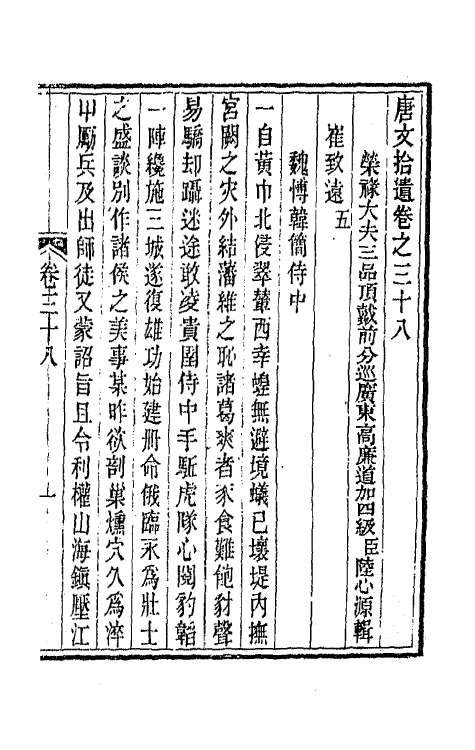 唐文拾遺卷之三十八
榮祿大夫三品頂戴前分巡廣東高廉道加四級臣陸心源輯
崔致遠五
魏博韓簡侍中
一自黃巾北侵翠輦西幸蝗無避境蟻已壞堤內撫
宮闕之灾外結藩維之恥諸葛爽者豕食難飽豺聲
易驕却躡迷途敢凌貴圉侍中手駈虎隊心閱豹韜
一陣纔施三城遂復雄功始建册命俄臨永爲壯士
之盛談別作諸侯之美事某昨欲剖巢燻穴久爲淬
甲勵兵及出師徒又蒙詔旨且令利權山海鎭壓江
卷三十八
一